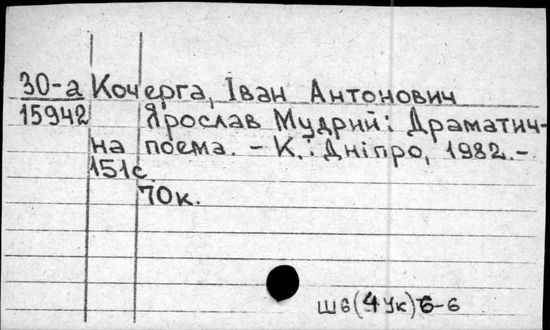 30-а Кочерга, Іван Антонович
15942 Ярослав Мудрий: Драматич-
на поема. - К.: Дніпро, 1982.-
151с.
70к.
Ш6(4Ук)6-6